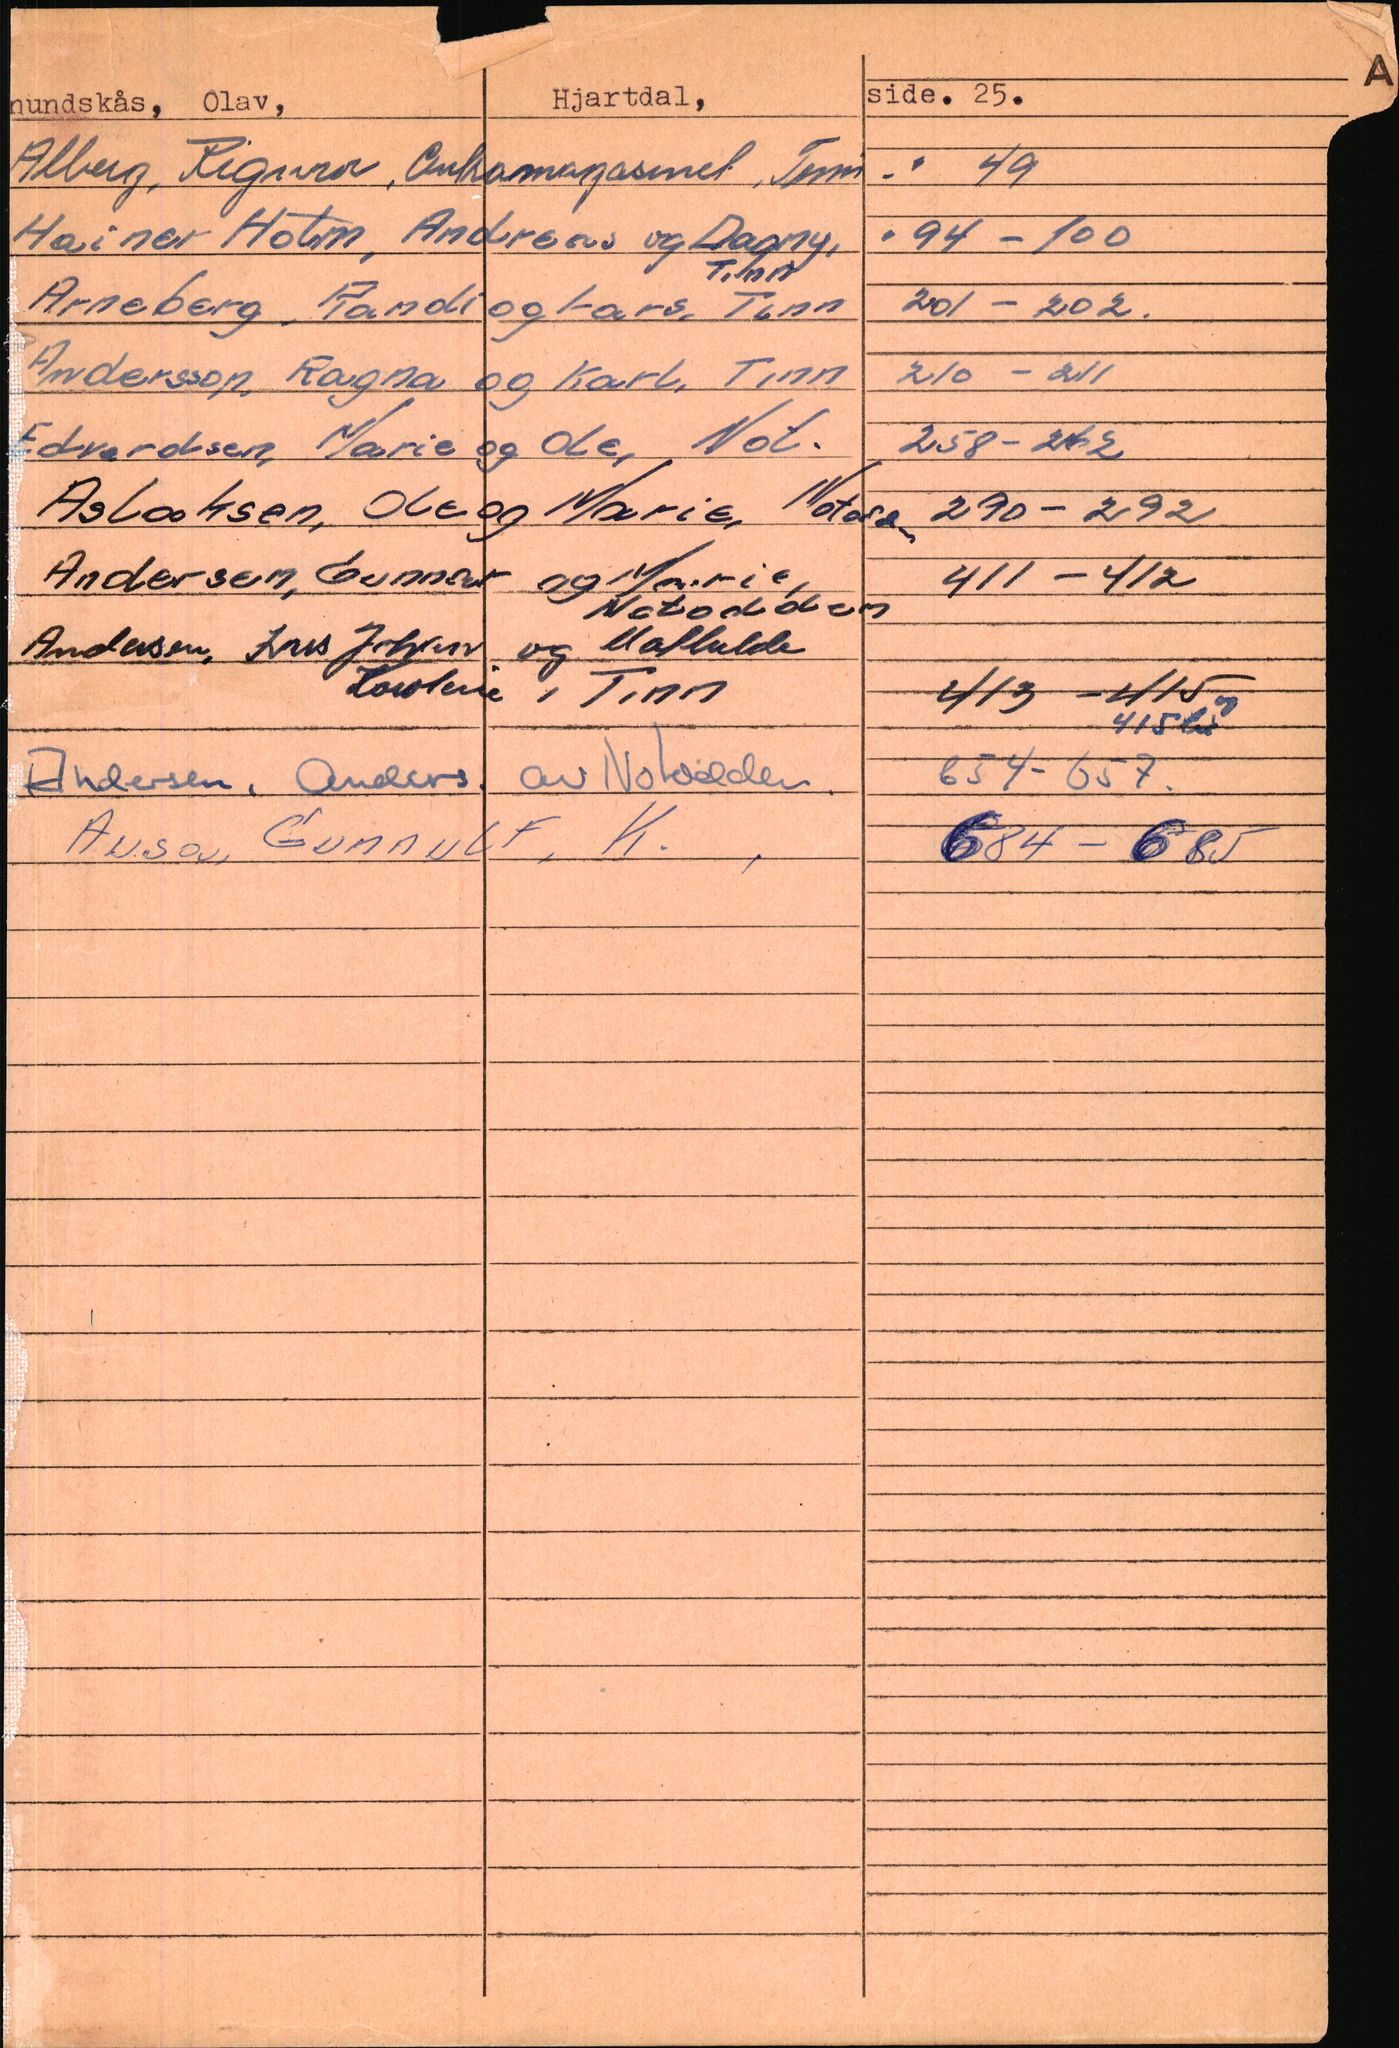 A
nundskås, Olav, Hjartdal, side. 25.
Alberg, Sigurd, Tinn - " 49
Hainer Holm, Andreas og Dagny, " 94 - 100
Tinn
Arneberg, Randi og Lars, Tinn 201 - 202.
Andersson, Ragna og Karl, Tinn 210 - 211
Edvardsen, Marie og Ole, Not. 258 - 262
Aslaksen, Ole og Marie, 290 - 292
Andersen, Gunnar og Marie, 411 - 412
Notodden
Andersen, Johan og Mathilde
, Tinn 413 - 415 og
415 bis
Andersen, Anders. av Notodden. 654 - 657.
Gunnulf, K. , 684 - 685